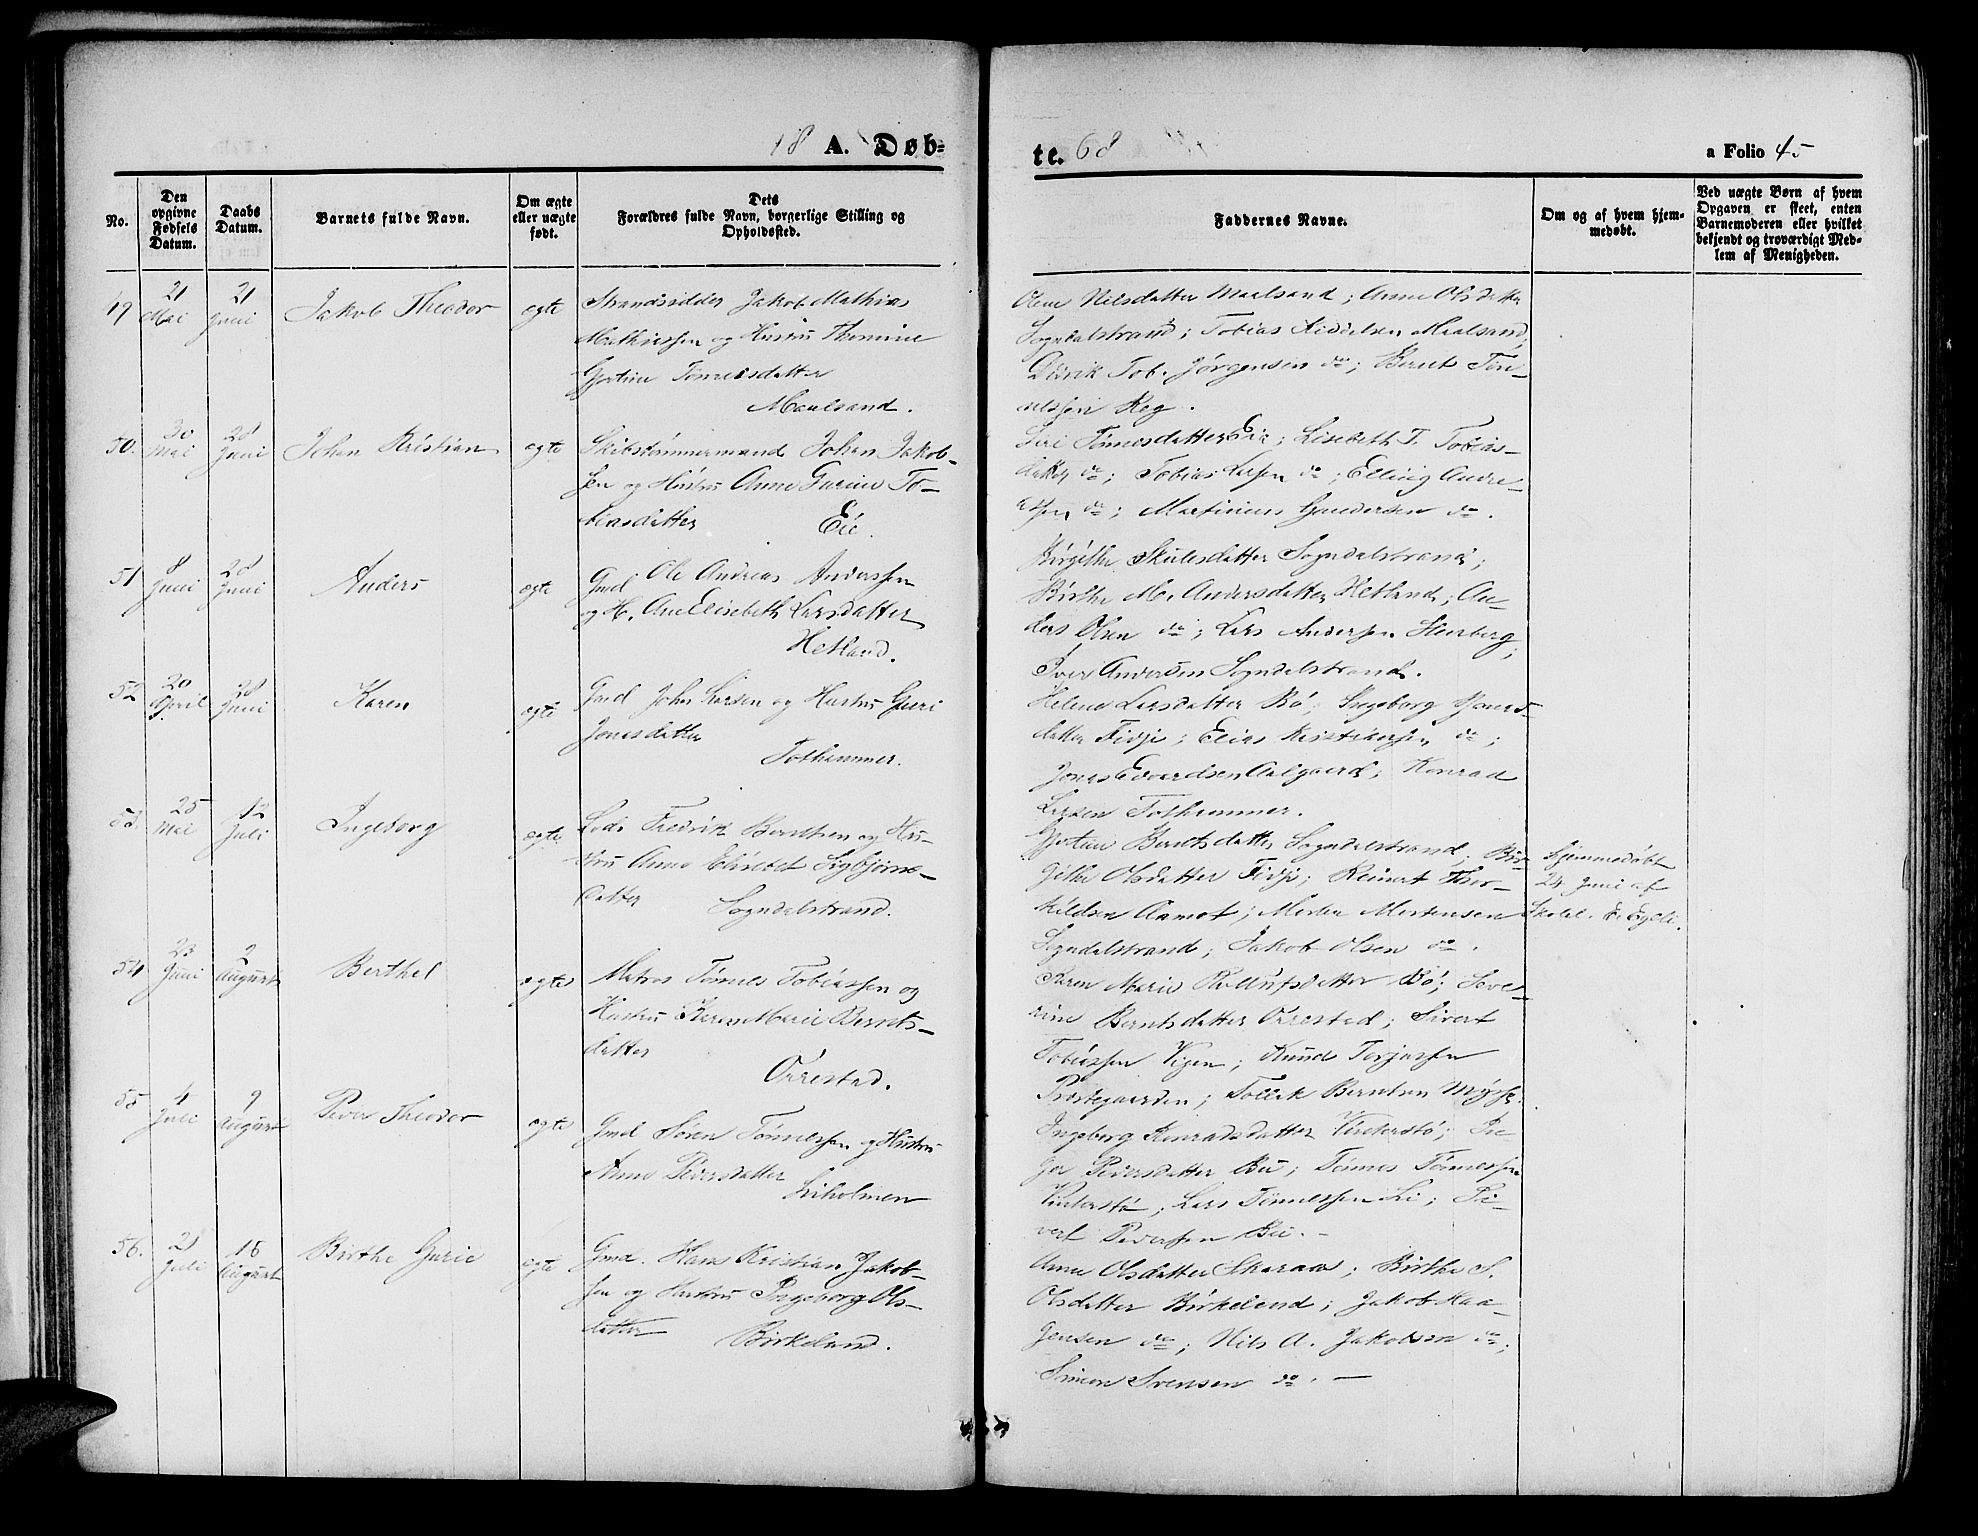 18 A. Døb-
te. 68
a Folio 45
No.
Den opgivne Fødsels Datum.
Daabs Datum.
Barnets fulde Navn.
Om ægte eller uægte født.
Dets Forældres fulde Navn, borgerlige Stilling og Opholdssted.
Faddernes Navne.
Om og af hvem hjemmedøbt.
Ved uægte Børn af hvem Opgaven er skeet, enten Barnemoderen eller hvilket bekjendt og troværdigt Medlem af Menigheden.
49 21 Mai 21 Juni Jakob Theodor ægte Strandsidder Jakob Mathias
Mathiassen og Hustru Thomine
Gjertine Tønnesdatter
Maalsand.
Nilsdatter Maalsand; Anne Olsdatter
Sogndalstrand; Tobias Maalsand;
Didrik Tob. Jørgensen do; Bernt Tøn-
nessen Reg.
50. 30 Mai 28 Juni Johan Kristian ægte Skibstømmermand Johan Jakob-
sen og Hustru Anne Gurine To-
biasdatter Eie.
Siri Tønnesdatter Eie; Lisebeth T. Tobias-
datter do; Tobias Larsen do; Elling Andre-
assen do; Martinius Gundersen do.
51 8 Juni 28 Juni Anders ægte Gmd Ole Andreas Anderssen
og H. Ane Elisebeth Larsdatter
Hetland.
Birgitte Skulesdatter Sogndalstrand;
Birthe M. Andersdatter Hetland; An-
ders Olsen do; Lars Andersen Stenberg;
Iver Andersen Sogndalstrand.
52 20 April 28 Juni Karen ægte Gmd John Larsen og Hustru Guri
Jonasdatter
Tothammer.
Helene Larsdatter Bø; Ingeborg Jonas-
datter Fidje; Elias Kristiansen do;
Jonas Edvardsen Aalgaard; Konrad
Larsen Tothammer.
53. 25 Mai 12 Juli Ingeborg ægte Lods Fredrik Berntsen og Hu-
stru Anne Elisebet Sigbjørns-
datter Sogndalstrand.
Gjertine Berntsdatter Sogndalstrand; Bir-
githe Olsdatter Fidje; Reinert Thor-
kildsen Aamot; Morten Mortensen
Sogndalstrand; Jakob Olsen do.
Hjemmedøbt
24 Juni af
Skolel. E. Egeli.
54 23 Juni 2 August Berthel ægte Matros Tønnes Tobiassen og
Hustru Karen Marie Bernts-
datter
Ørrestad.
Karen Marie Bø; Seve-
rine Berntsdatter Ørrestad; Sivert
Tobiassen Vigen; Knud Torjussen
Præstegaarden; Tollek Berntsen
55 4 Juli 9 August Peder Theodor ægte Gmd Søren Tønnessen og Hustru
Anne Pedersdatter
Liholmen
Ingeborg Konradsdatter Vinterstø;
Pedersdatter Bu; Tønnes Tønnessen
Vinterstø; Lars Tønnessen Li; Si-
vert Pederssen Bu.
56. 21 Juli 16 August Birthe Gurie ægte Gmd. Hans Kristian Jakob-
sen og Hustru Ingeborg Ols-
datter
Birkeland.
Anne Olsdatter Skaraas; Birthe S.
Olsdatter Birkeland; Jakob Haa-
gensen do; Nils A. Jakobsen do;
Simon Svensen do.